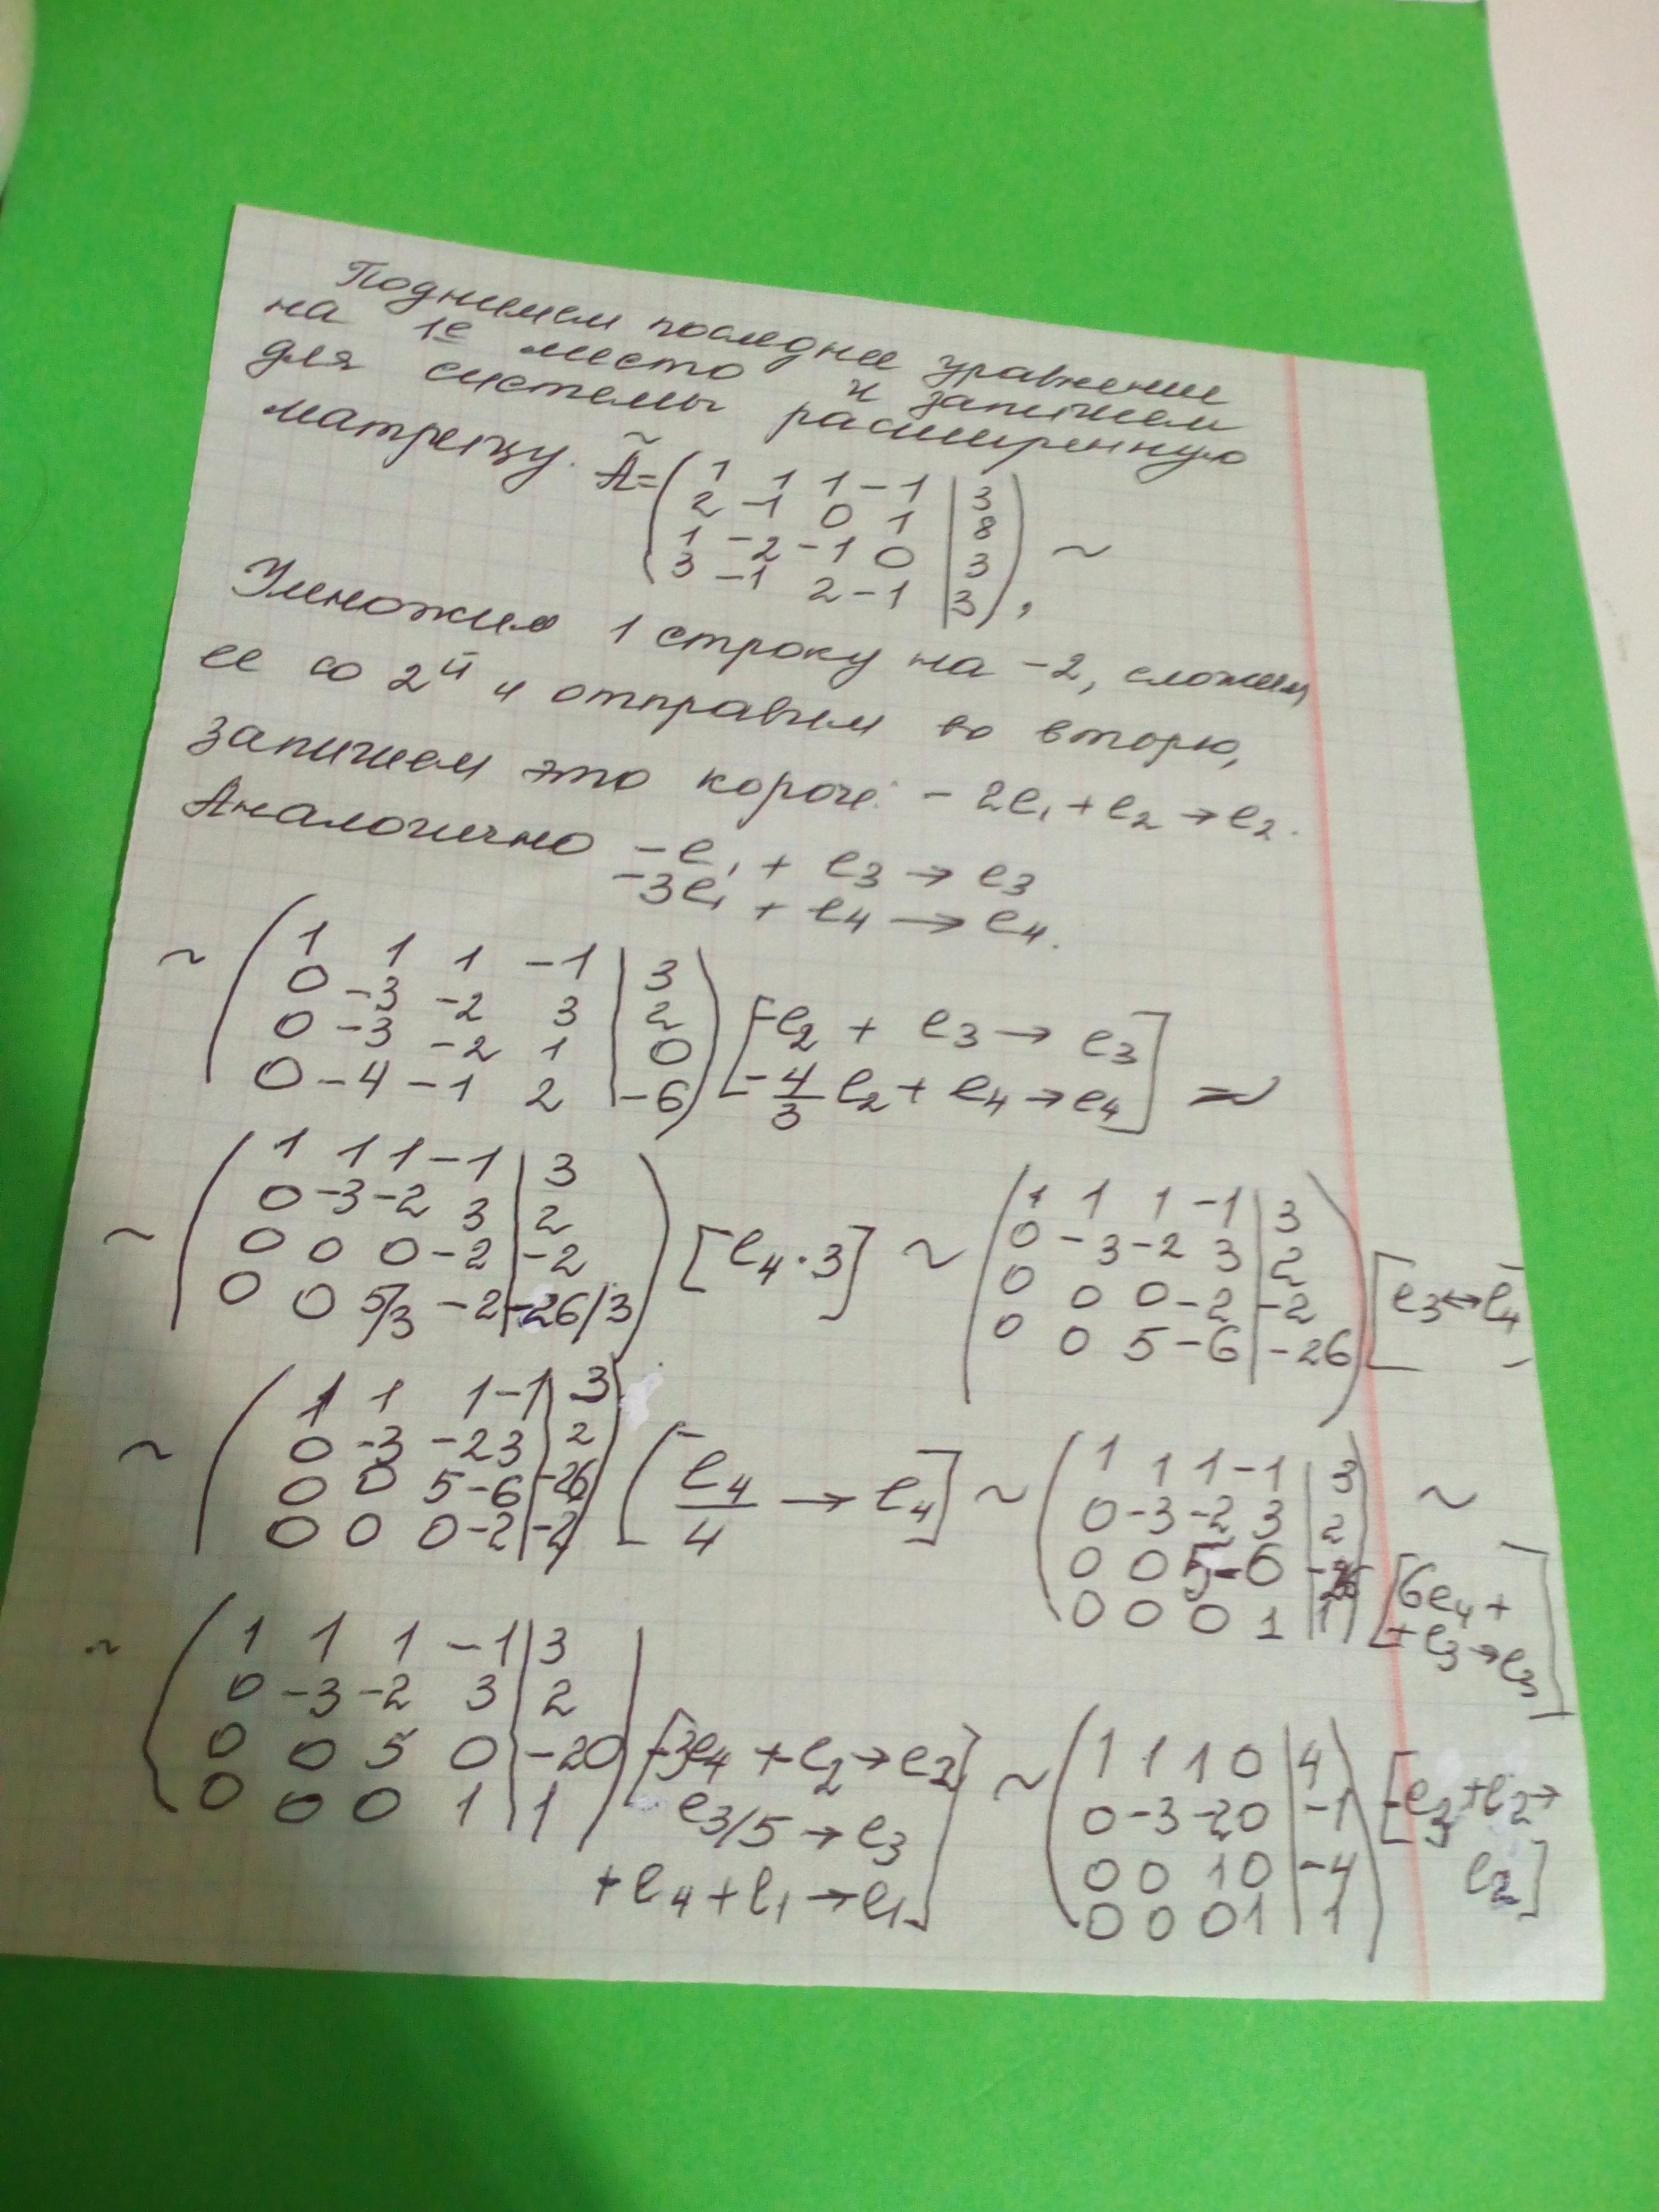 Поднимем последнее уравнение
на 1е место и запишем
для системы расширенную
матрицу. Ã= ( 1 1 1 -1 | 3
2 -1 0 1 | 8
1 -2 -1 0 | 3
3 -1 2 -1 | 3 ) , ~
Умножив 1 строку на -2, сложим
ее со 2й и отправим во вторю,
запишем это короче: - 2e₁ + e₂ → e₂.
Аналогично -e₁ + e₃ → e₃
-3e₁ + e₄ → e₄.
~ ( 1 1 1 -1 | 3
0 -3 -2 3 | 2
0 -3 -2 1 | 0
0 -4 -1 2 | -6 ) [ -e₂ + e₃ → e₃
-4/3 e₂ + e₄ → e₄ ] ~
~ ( 1 1 1 -1 | 3
0 -3 -2 3 | 2
0 0 0 -2 | -2
0 0 5/3 -2 | -26/3 ) [e₄ · 3]
~ ( 1 1 1 -1 | 3
0 -3 -2 3 | 2
0 0 0 -2 | -2
0 0 5 -6 | -26 ) [e₃ ↔ e₄]
~ ( 1 1 1 -1 | 3
0 -3 -2 3 | 2
0 0 5 -6 | -26
0 0 0 -2 | -2 ) [ e₄/4 → e₄ ]
~ ( 1 1 1 -1 | 3
0 -3 -2 3 | 2
0 0 5 -6 | -26
0 0 0 1 | 1 ) ~
[6e₄ +
+ e₃ → e₃]
~ ( 1 1 1 -1 | 3
0 -3 -2 3 | 2
0 0 5 0 | -20
0 0 0 1 | 1 ) [-3e₄ + e₂ → e₂
e₃/5 → e₃
+e₄ + e₁ → e₁]
~ ( 1 1 1 0 | 4
0 -3 -2 0 | -1
0 0 1 0 | -4
0 0 0 1 | 1 ) [-e₃ + e₂ →
e₂]